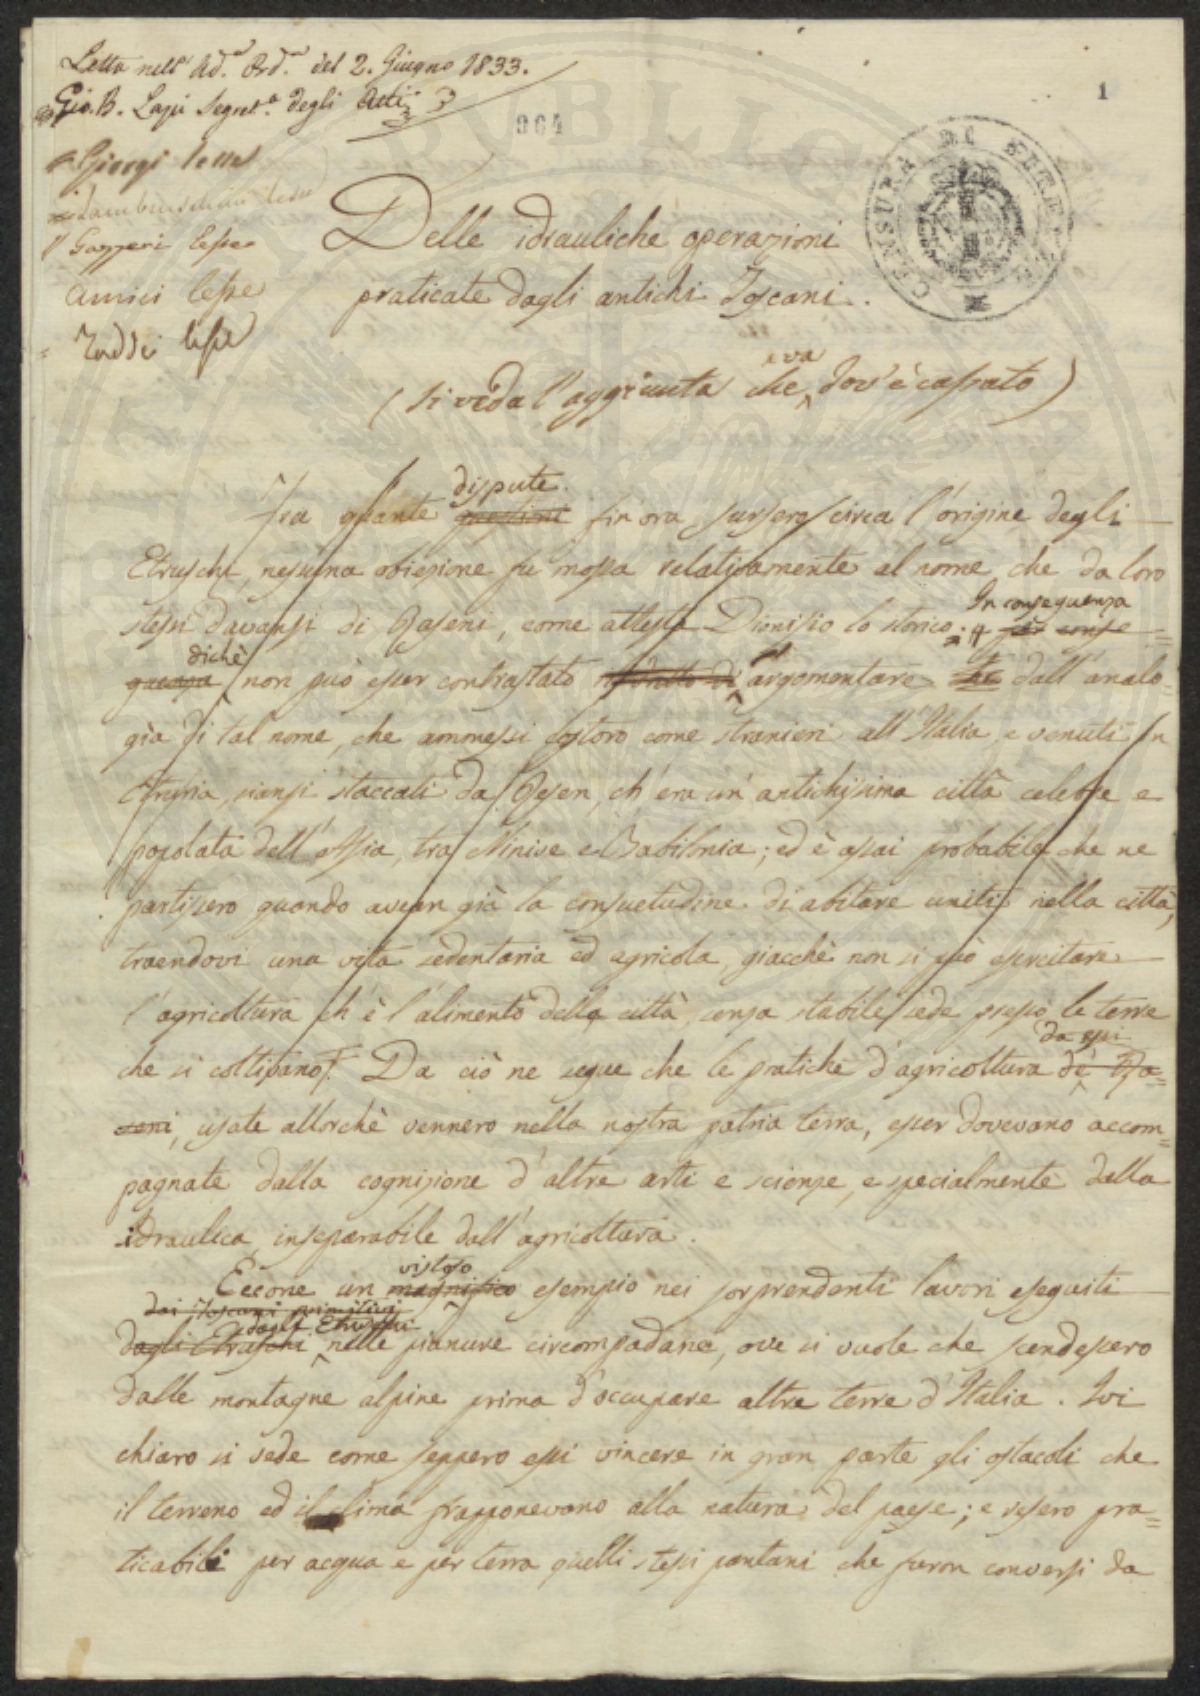 Letta nell' Ad.ª Ord.ª del 2. Giugno 1833.
Gio. B. Lapi Segret.º degli Atti
1
964
Giorgi lesse
Gazzeri lesse
Amici lesse
Taddei lesse
CENSURA DI
Delle idrauliche operazioni
praticate dagli antichi Toscani.
(si veda l'aggiunta che va dov'è cassato)
dispute
Fra quante questioni finora sursero circa l'origine degli
Etruschi, nessuna obiezione fu mossa relativamente al nome che da loro
In conseguenza
stessi davansi di Raseni, come attesta Dionisio lo storico; per conse=
dichè
guenza non può esser contrastato argomentare che dall'analo=
gìa di tal nome, che ammessi costoro come stranieri all'Italia e venuti in
Etruria, siansi staccati da Resen, ch'era un'antichissima città celebre e
popolata dell'Assia, tra Ninive e Babilonia; ed è assai probabile che ne
partissero quando avean già la consuetudine di abitare uniti nella città,
traendovi una vita sedentaria ed agricola, giacchè non si può esercitare
l'agricoltura ch'è l'alimento della città senza stabile sede presso le terre
da essi
che si coltivano. Da ciò ne segue che le pratiche d'agricoltura de' Ra=
seni, usate allorchè vennero nella nostra patria terra, esser dovevano accom=
pagnate dalla cognizione d'altre arti e scienze, e specialmente dalla
idraulica inseparabile dall'agricoltura.
vistoso
Eccone un magnifico esempio nei sorprendenti lavori eseguiti
dai Toscani primitivi
dagli Etruschi
dagli Etruschi nelle pianure circompadane, ove si vuole che scendessero
dalle montagne alpine prima d'occupare altre terre d'Italia. Ivi
chiaro si vede come seppero essi vincere in gran parte gli ostacoli che
il terreno ed il clima frapponevano alla natura del paese; e resero pra=
ticabili per acqua e per terra quelli stessi pantani che furon conversi da